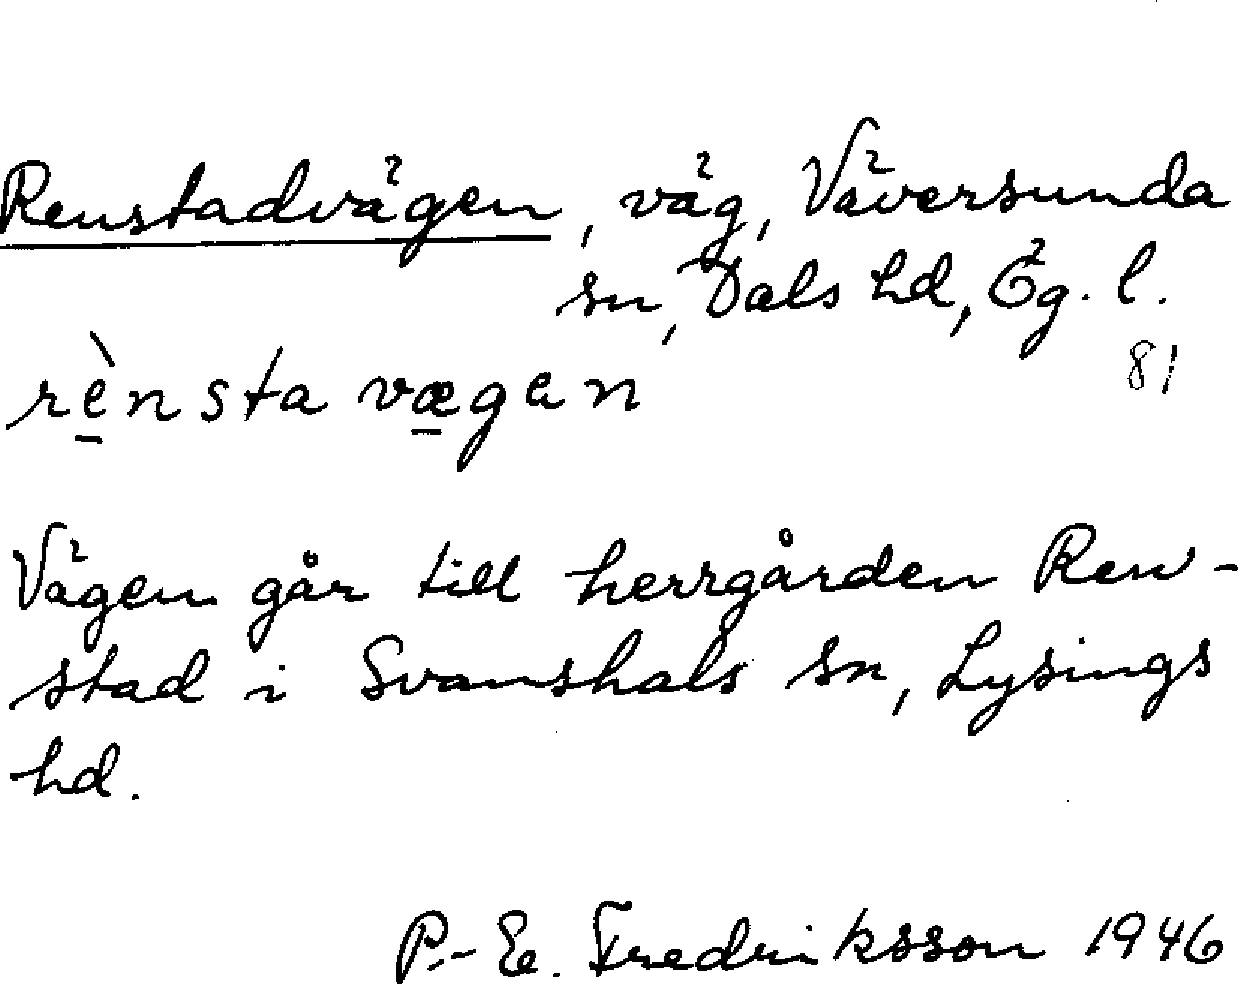 Renstadvägen, väg, Väversunda
sn, Dals hd, Ög. l.
81
rènsta vægen
Vägen går till herrgården Ren-
stad i Svanshals sn, Lysings
hd.
P.-E. Fredriksson 1946